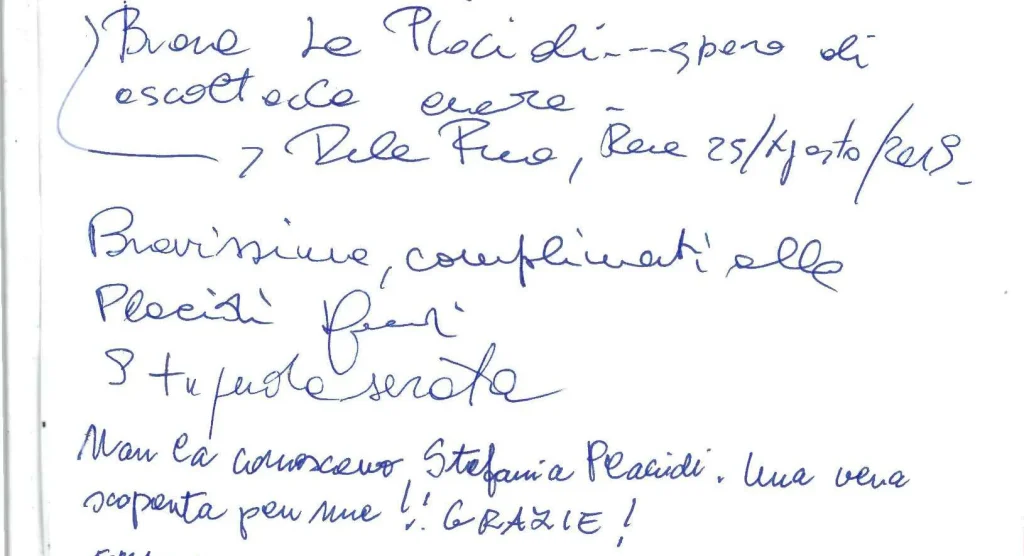 Brava la Placidi---spero di
ascoltarla ancora -
Roma 25/Agosto/2019-
Bravissima, complimenti alla
Placidi
Stupenda serata
Non la conoscevo, Stefania Placidi. Una vera
scoperta per me!! GRAZIE!